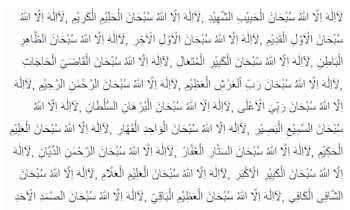 لَاۤاِلٰهَ اِلَّا اللهُ سُبْحَانَ الْحَبِيْبِ الشَّهِيْدِ, لَاۤاِلٰهَ اِلَّا اللهُ سُبْحَانَ الْحَلِيْمِ الْكَرِيْمِ, لَاۤاِلٰهَ اِلَّا اللهُ
سُبْحَانَ الْاَوَّلِ الْقَدِيْمِ, لَاۤاِلٰهَ اِلَّا اللهُ سُبْحَانَ الْاَوَّلِ الْاٰخِرِ, لَاۤاِلٰهَ اِلَّا اللهُ سُبْحَانَ الظَّاهِرِ
الْبَاطِنِ, لَاۤاِلٰهَ اِلَّا اللهُ سُبْحَانَ الْكَبِيْرِ الْمُتَعَالِ, لَاۤاِلٰهَ اِلَّا اللهُ سُبْحَانَ الْقَاضِيَ الْحَاجَاتِ
,لَاۤاِلٰهَ اِلَّا اللهُ سُبْحَانَ رَبِّ الْعَرْشِ الْعَظِيْمِ, لَاۤاِلٰهَ اِلَّا اللهُ سُبْحَانَ الرَّحْمٰنِ الرَّحِيْمِ, لَاۤاِلٰهَ
اِلَّا اللهُ سُبْحَانَ رَبِّيَ الْاَعْلٰى, لَاۤاِلٰهَ اِلَّا اللهُ سُبْحَانَ الْبُرْهَانِ السُّلْطَانِ, لَاۤاِلٰهَ اِلَّا اللهُ
سُبْحَانَ السَّمِيْعِ الْبَصِيْرِ, لَاۤاِلٰهَ اِلَّا اللهُ سُبْحَانَ الْوَاحِدِ الْقَهَّارِ, لَاۤاِلٰهَ اِلَّا اللهُ سُبْحَانَ الْعَلِيْمِ
الْحَكِيْمِ, لَاۤاِلٰهَ اِلَّا اللهُ سُبْحَانَ السَّتَّارِ الْغَفَّارِ, لَاۤاِلٰهَ اِلَّا اللهُ سُبْحَانَ الرَّحْمٰنِ الدَّيَّانِ, لَاۤاِلٰهَ
اِلَّا اللهُ سُبْحَانَ الْكَبِيْرِ الْاَكْبَرِ, لَاۤاِلٰهَ اِلَّا اللهُ سُبْحَانَ الْعَلِيْمِ الْعَلَّامِ, لَاۤاِلٰهَ اِلَّا اللهُ سُبْحَانَ
الشَّافِى الْكَافِي, لَاۤاِلٰهَ اِلَّا اللهُ سُبْحَانَ الْعَظِيْمِ الْبَاقِيْ, لَاۤاِلٰهَ اِلَّا اللهُ سُبْحَانَ الصَّمَدِ الْاَحَدِ